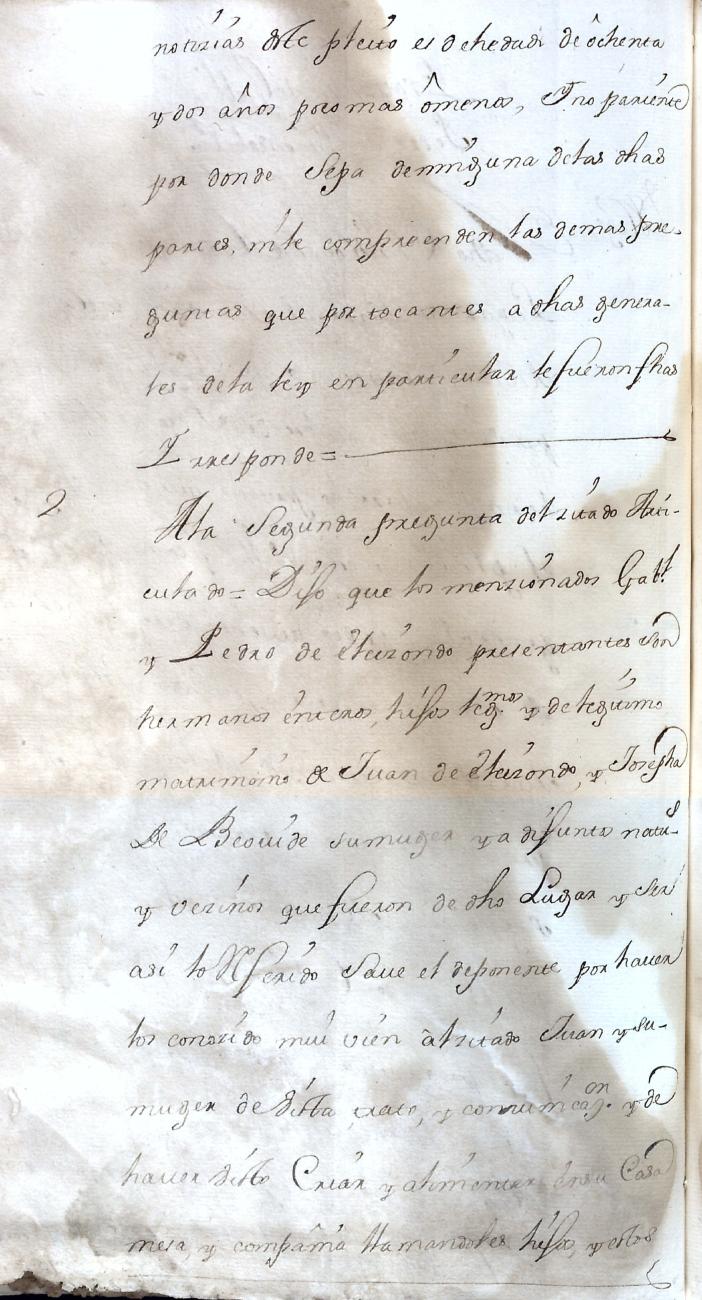 notizias deste pleito es de hedad de ôchenta
y dos años poco mas ômenos, Ino pariente
por donde sepa deninguna delas dhas
partes, nile comprenden las demas pre-
guntas que por tocantes a dhas genera-
les dela ley en particular le fueron fhas
I rresponde=
2 Ala segunda pregunta del zitado Arti-
culado= Dijo que los menzionados Gab.l
y Pedro de Elizondo presentantes son
hermanos énteros, hijos leg.mos y de legitimo
matrimonio de Juan de Elizondo, y Josepha
De Beoiide sumuger ya difuntos nat.s
y vezinos que fueron de dho Lugar y ser
asi lo Referido save el deponente por haver
los conozido mui vien âl zitado Juan y su-
muger de vista trato, y comunicaz.on y de
haver visto Criar y alimentar ensu Casa
mesa, y compañia llamandoles hijos, y estos